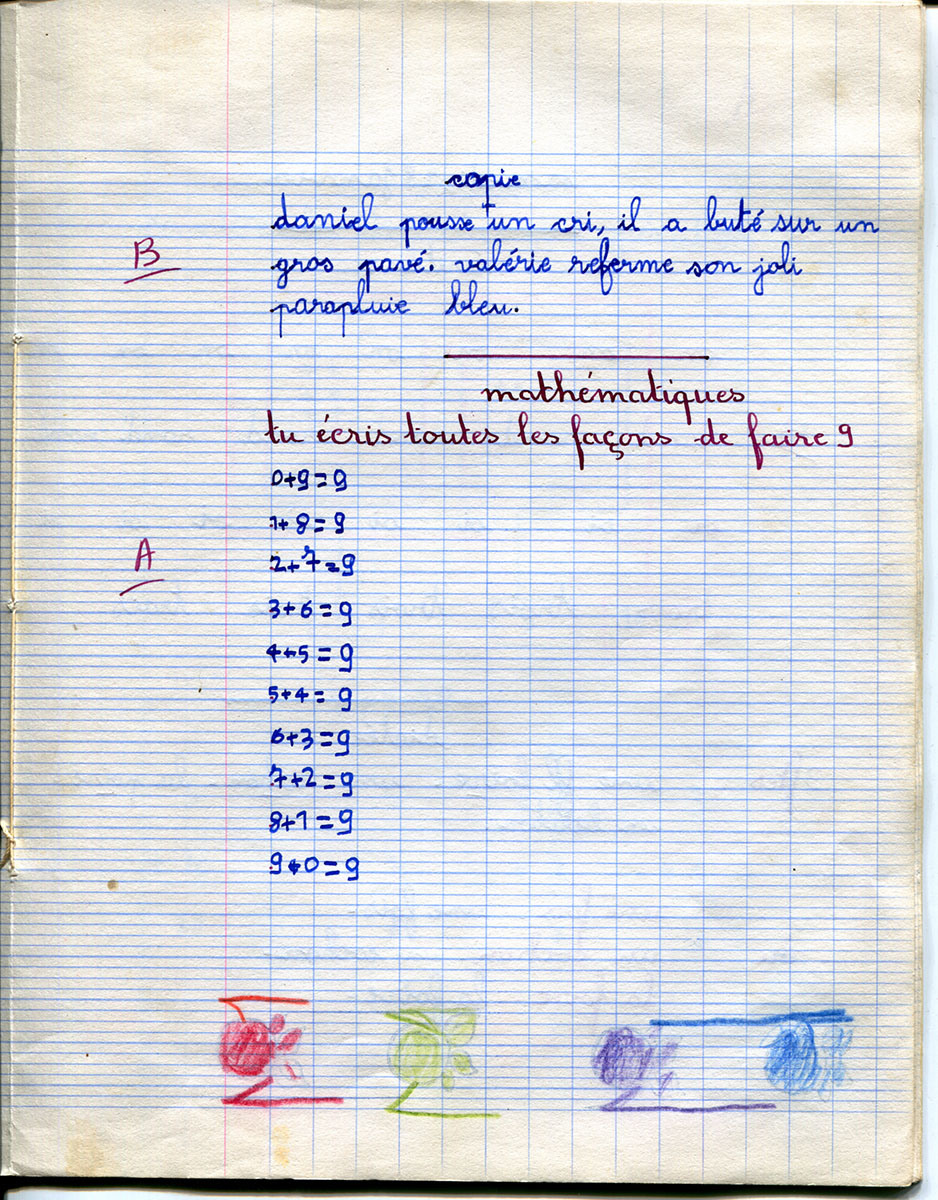 copie
daniel pousse un cri, il a buté sur un
B
gros pavé. valérie referme son joli
parapluie bleu.
mathématiques
tu écris toutes les façons de faire 9
0+9=9
1+8=9
A
2+7=9
3+6=9
4+5=9
5+4=9
6+3=9
7+2=9
8+1=9
9+0=9